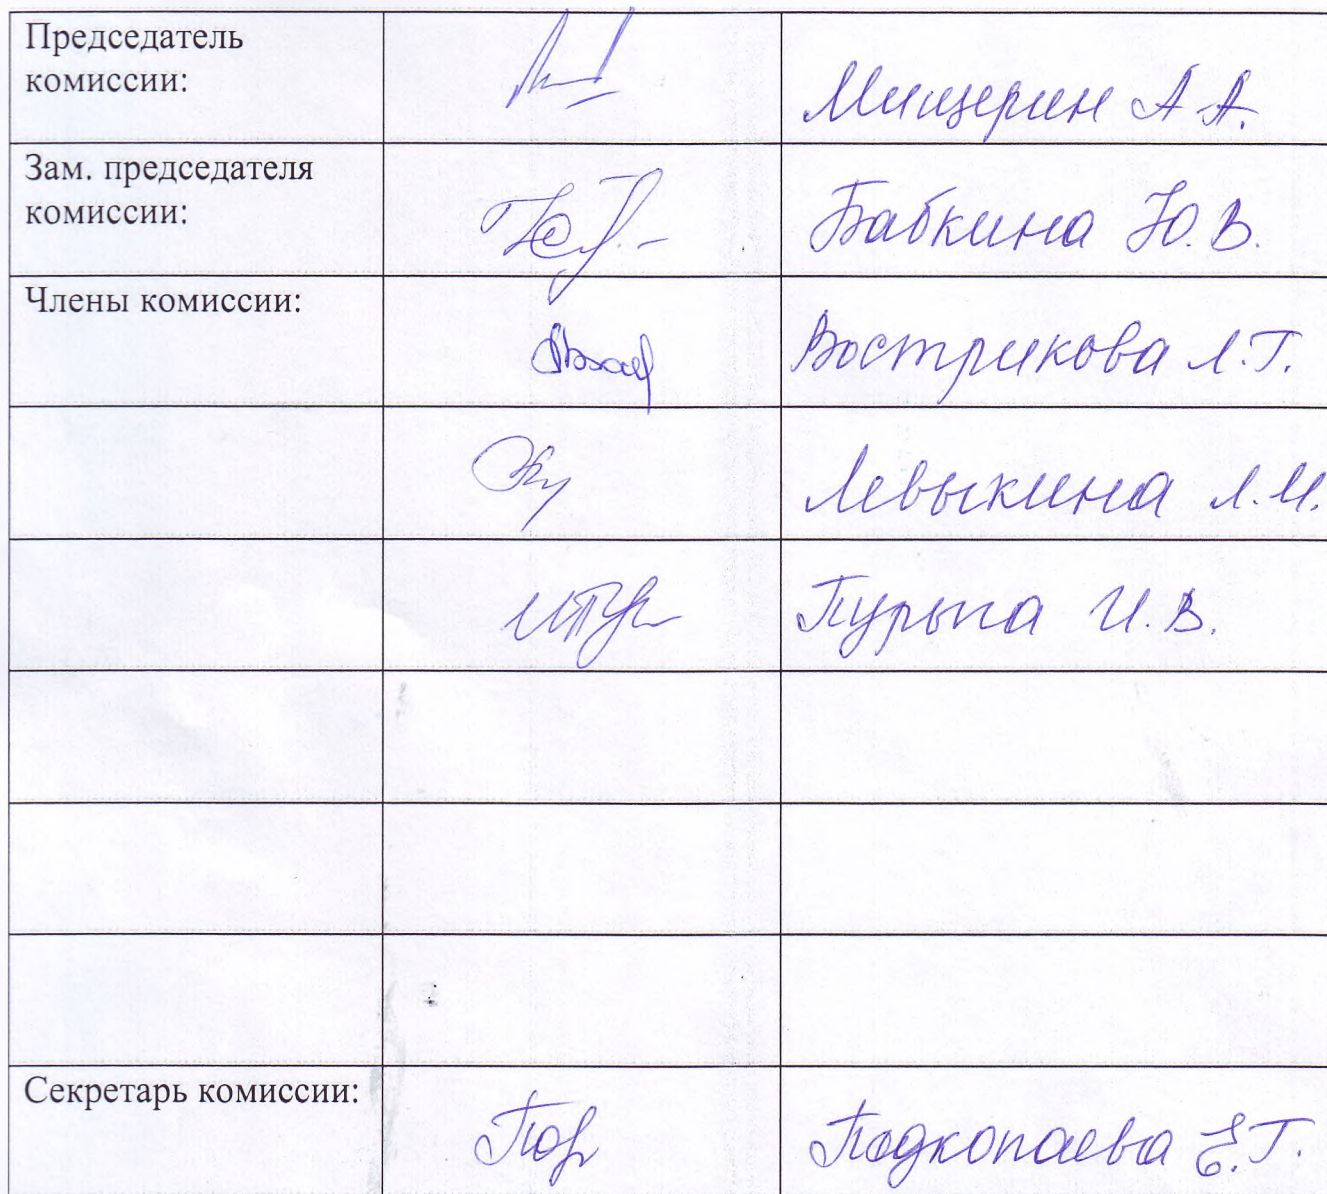 Председатель
комиссии:
Мищерин А.А.
Зам. председателя
комиссии:
Бабкина Ю.В.
Члены комиссии:
Вострикова Л.Г.
Левыкина Л.И.
И.В.
Секретарь комиссии:
Подкопаева Е.Г.